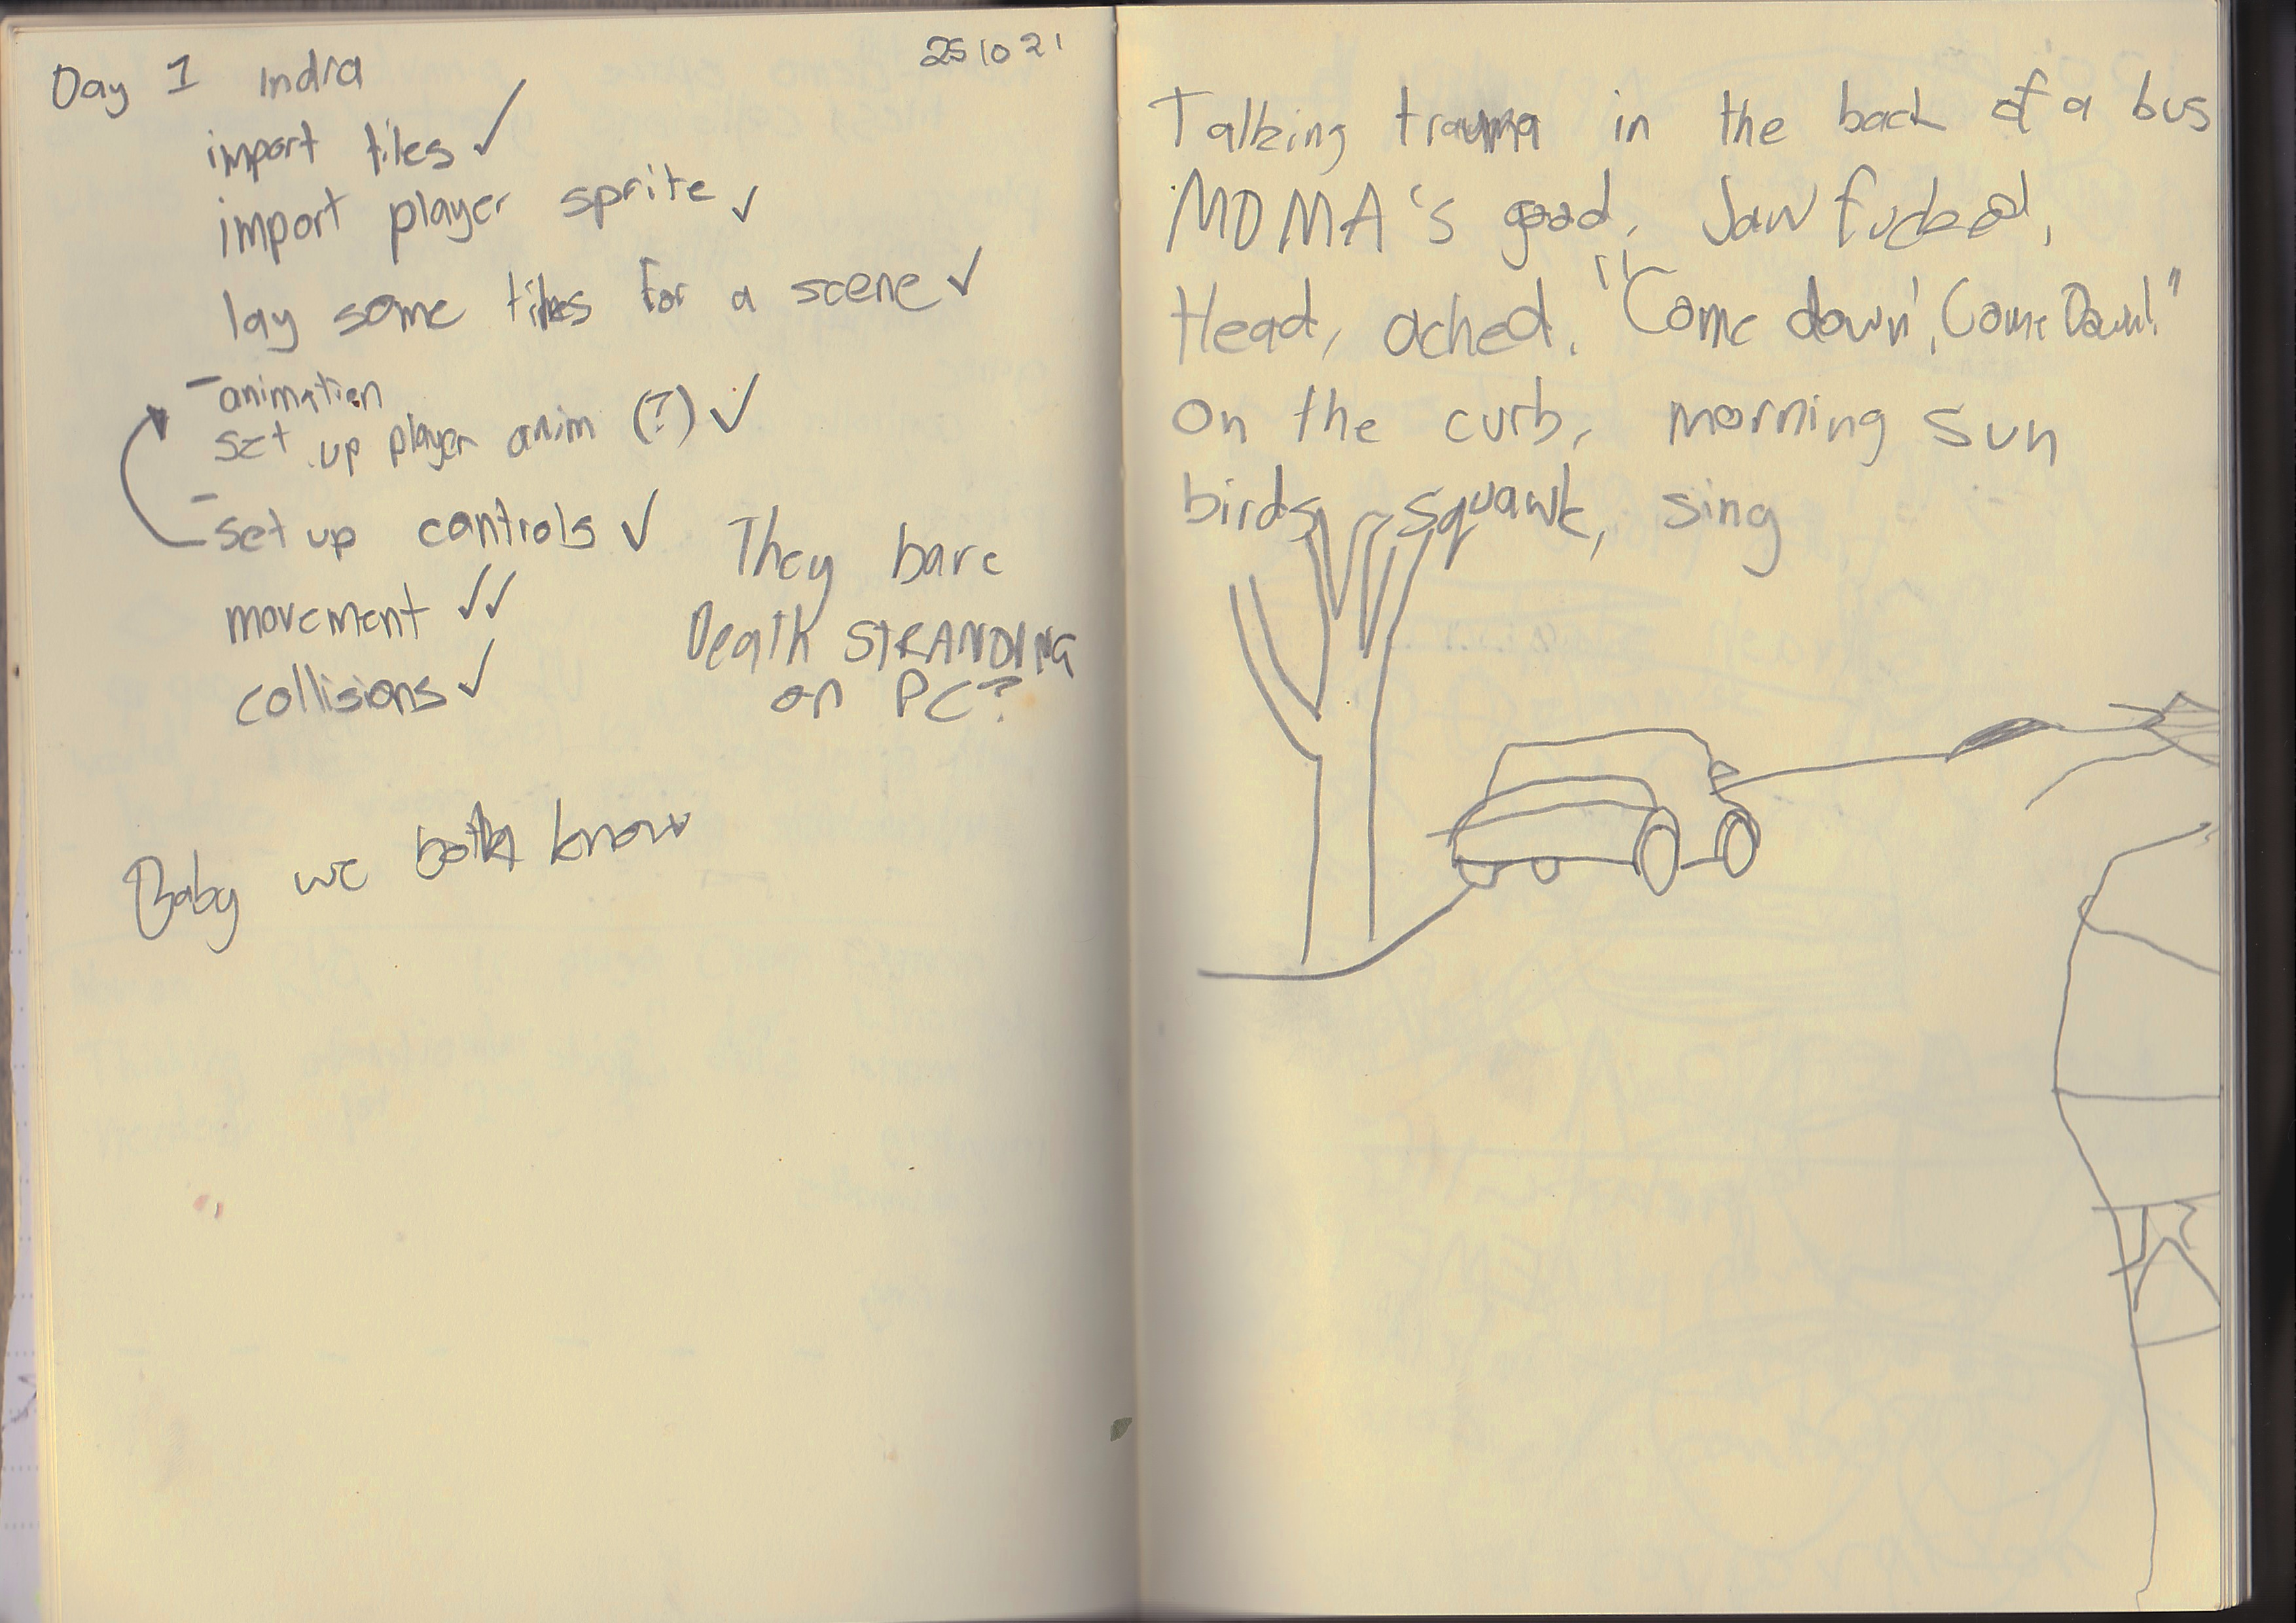 Day 1 Indra
25 10 21
import tiles ✓
import player sprite ✓
lay some tiles for a scene ✓
- animation
set up player anim (?) ✓
- set up controls ✓
movement ✓✓
collisions ✓
They bare
Death STRANDING
on PC?
Baby we both know
Talking trauma in the back of a bus
MDMA's good, Jaw fucked,
Head, ached. "'Come down', Come Down!"
On the curb, morning sun
birds squawk, sing